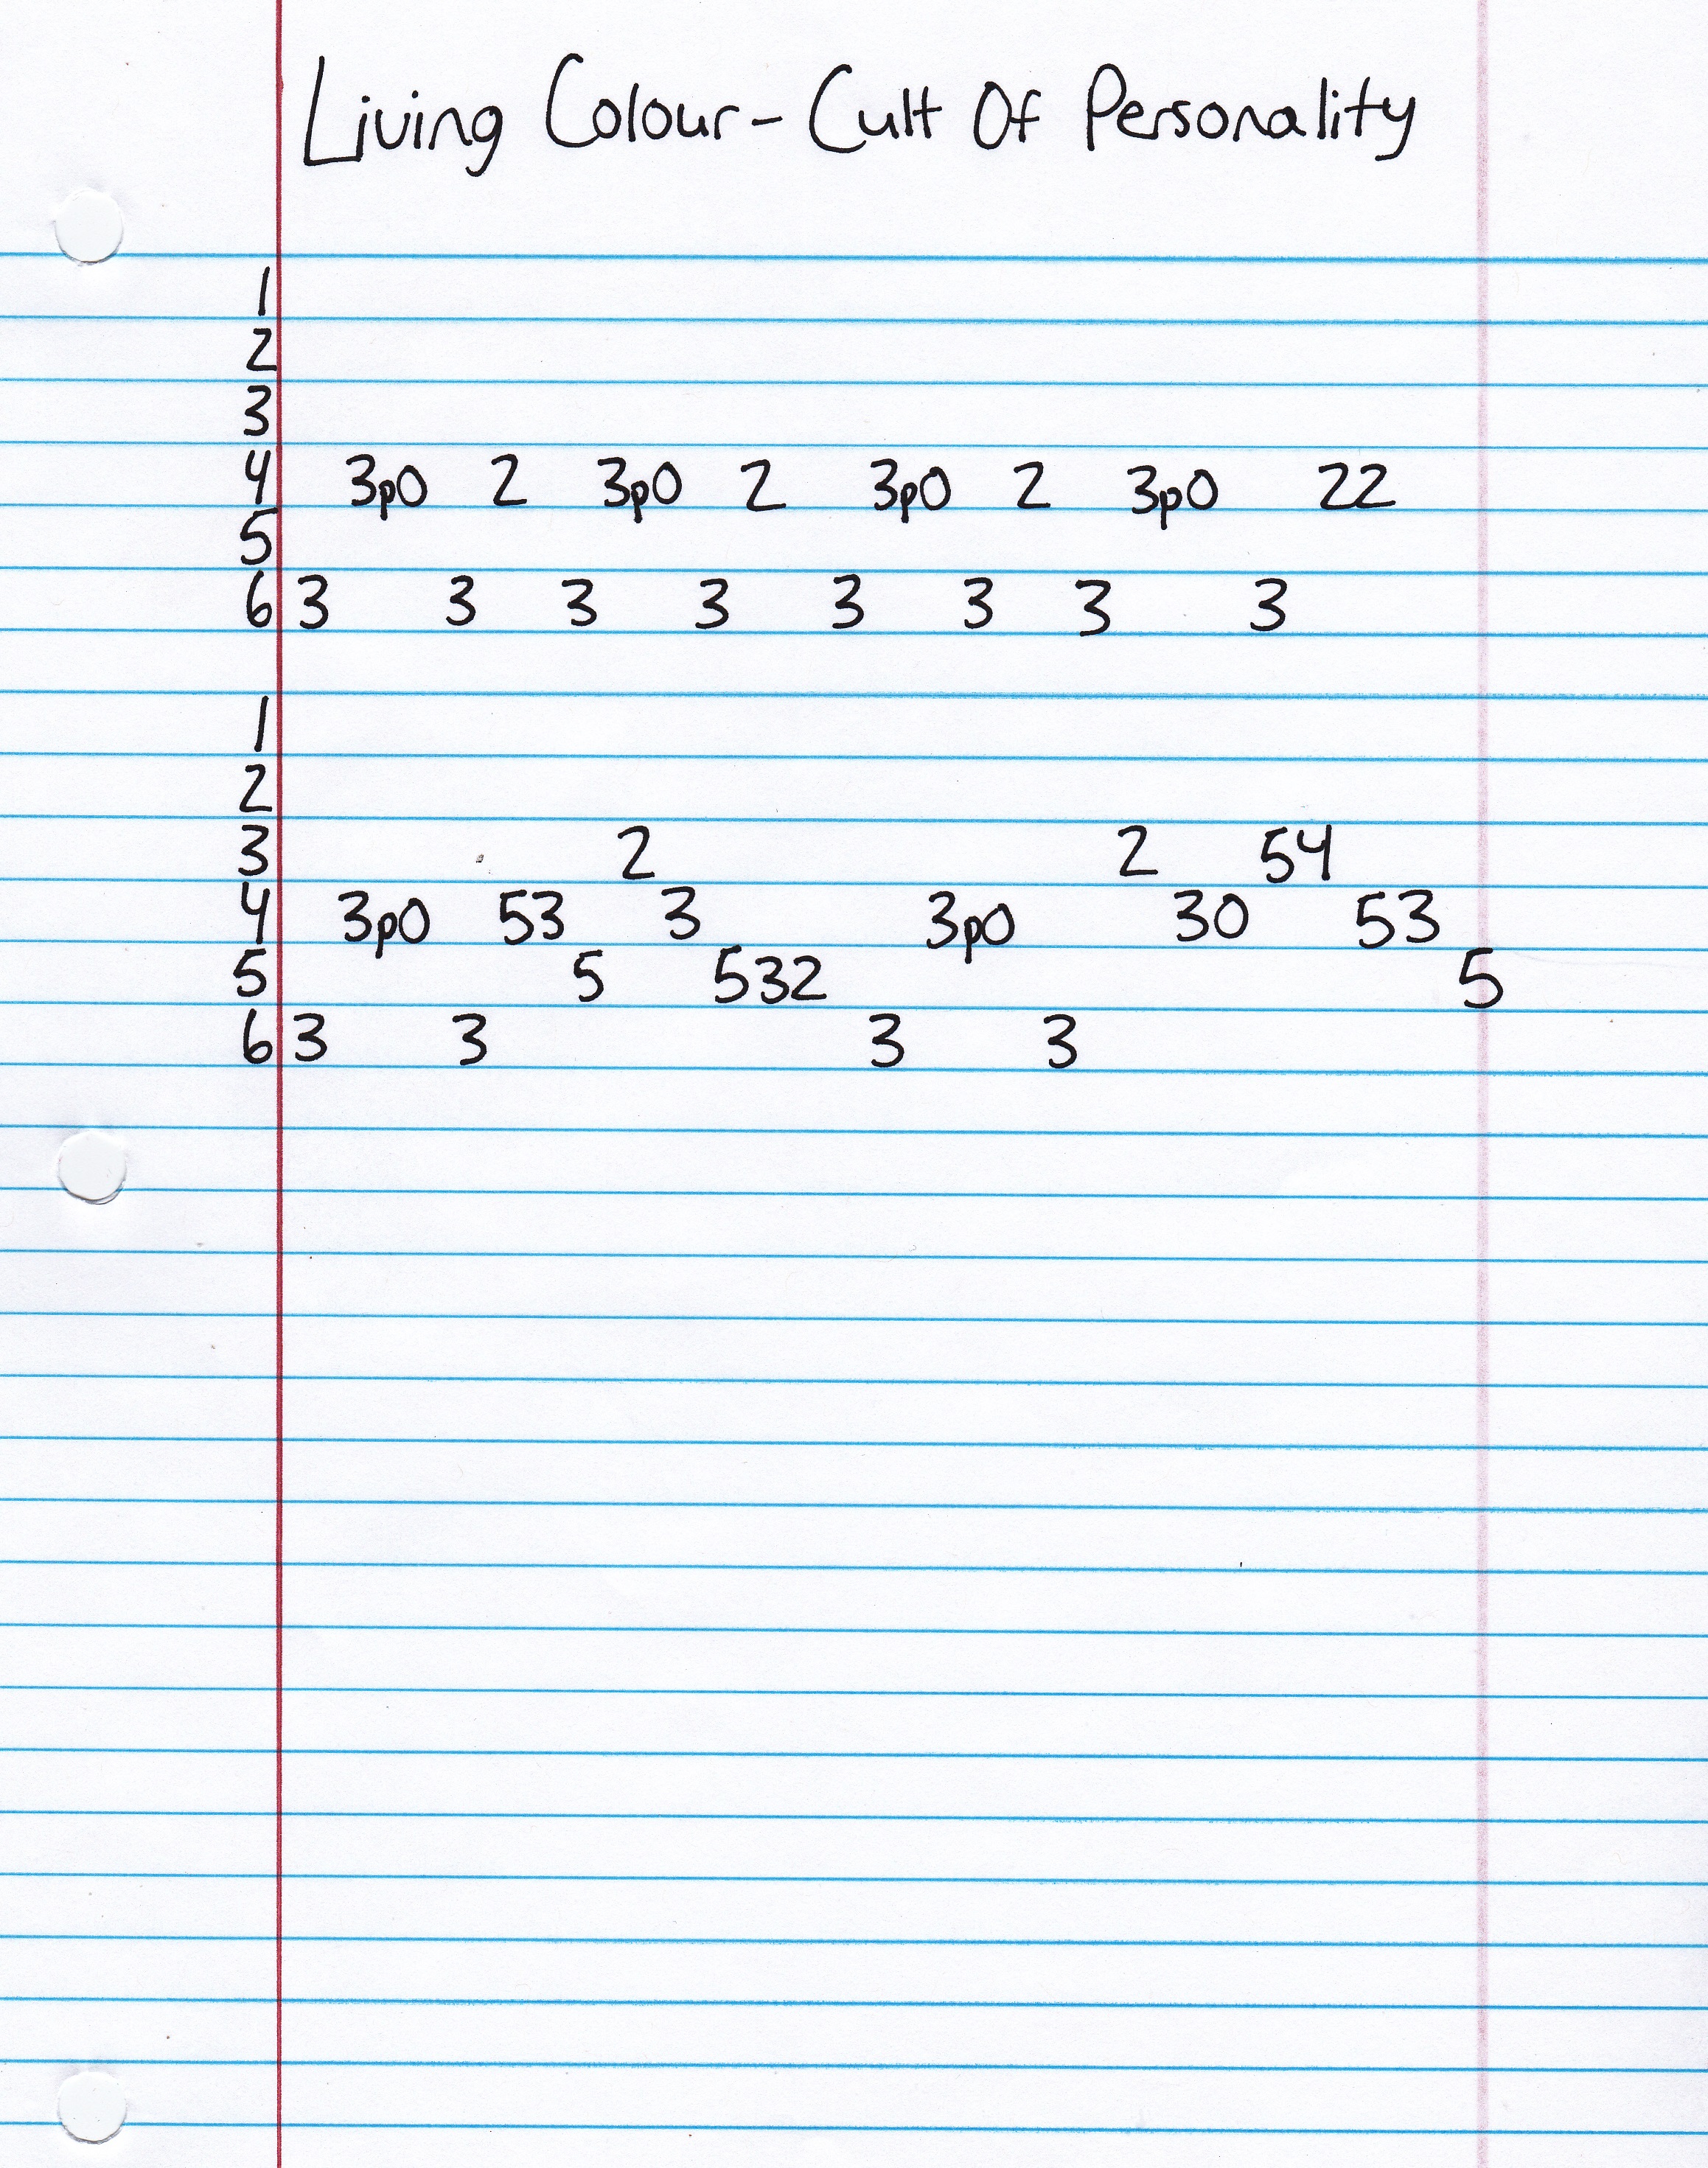 Living Colour - Cult Of Personality
1
2
3
4 3p0 2 3p0 2 3p0 2 3p0 22
5
6 3 3 3 3 3 3 3 3
1
2
3 2 2 54
4 3p0 53 3 3p0 30 53
5 5 532 5
6 3 3 3 3